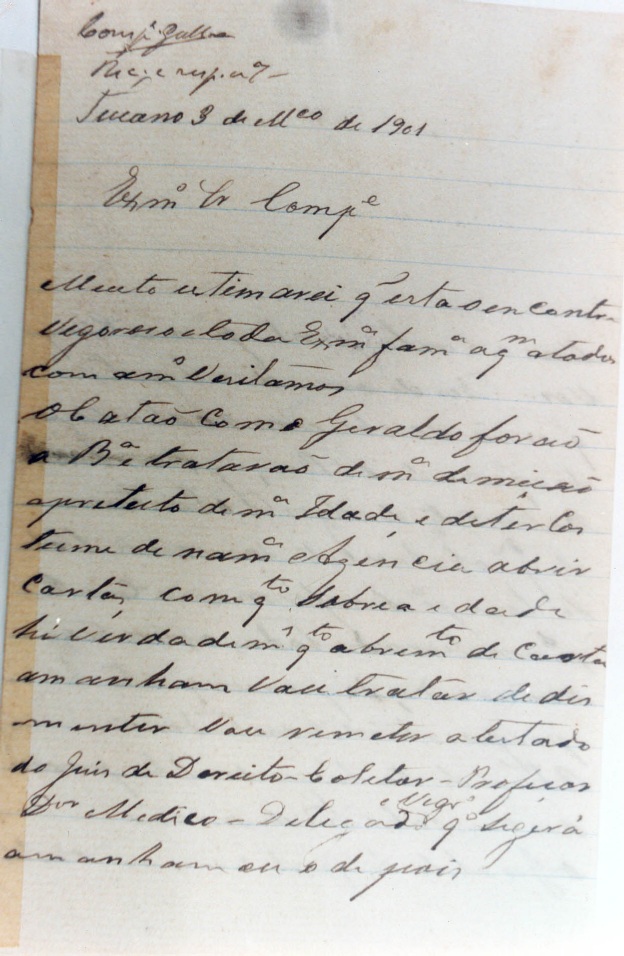 Comp.e
Tucano 3 de Mco de 1901
Exmo Sr Compe
Muito estimarei q̃ esta o encontre
vigoroso e toda Exma fama aqm a todos
com amo Visitamos
Obataõ Como Geraldo foraõ
a Ba e trataraõ de ma demicaõ
apreteisto de ma Idade, e de ter Cos
tume de na ma Agencia abrir
Cartas, com qto Sobre a edade
hi Verdade mas qto abrimto de Carta
amanham Vou tratár de dis
menter Vou remeter atestado
do Juis de Dereito - Coletor - Profeçor
Dor Medico - Delegado e Vigro qe Sigerá
amanham ou o depois